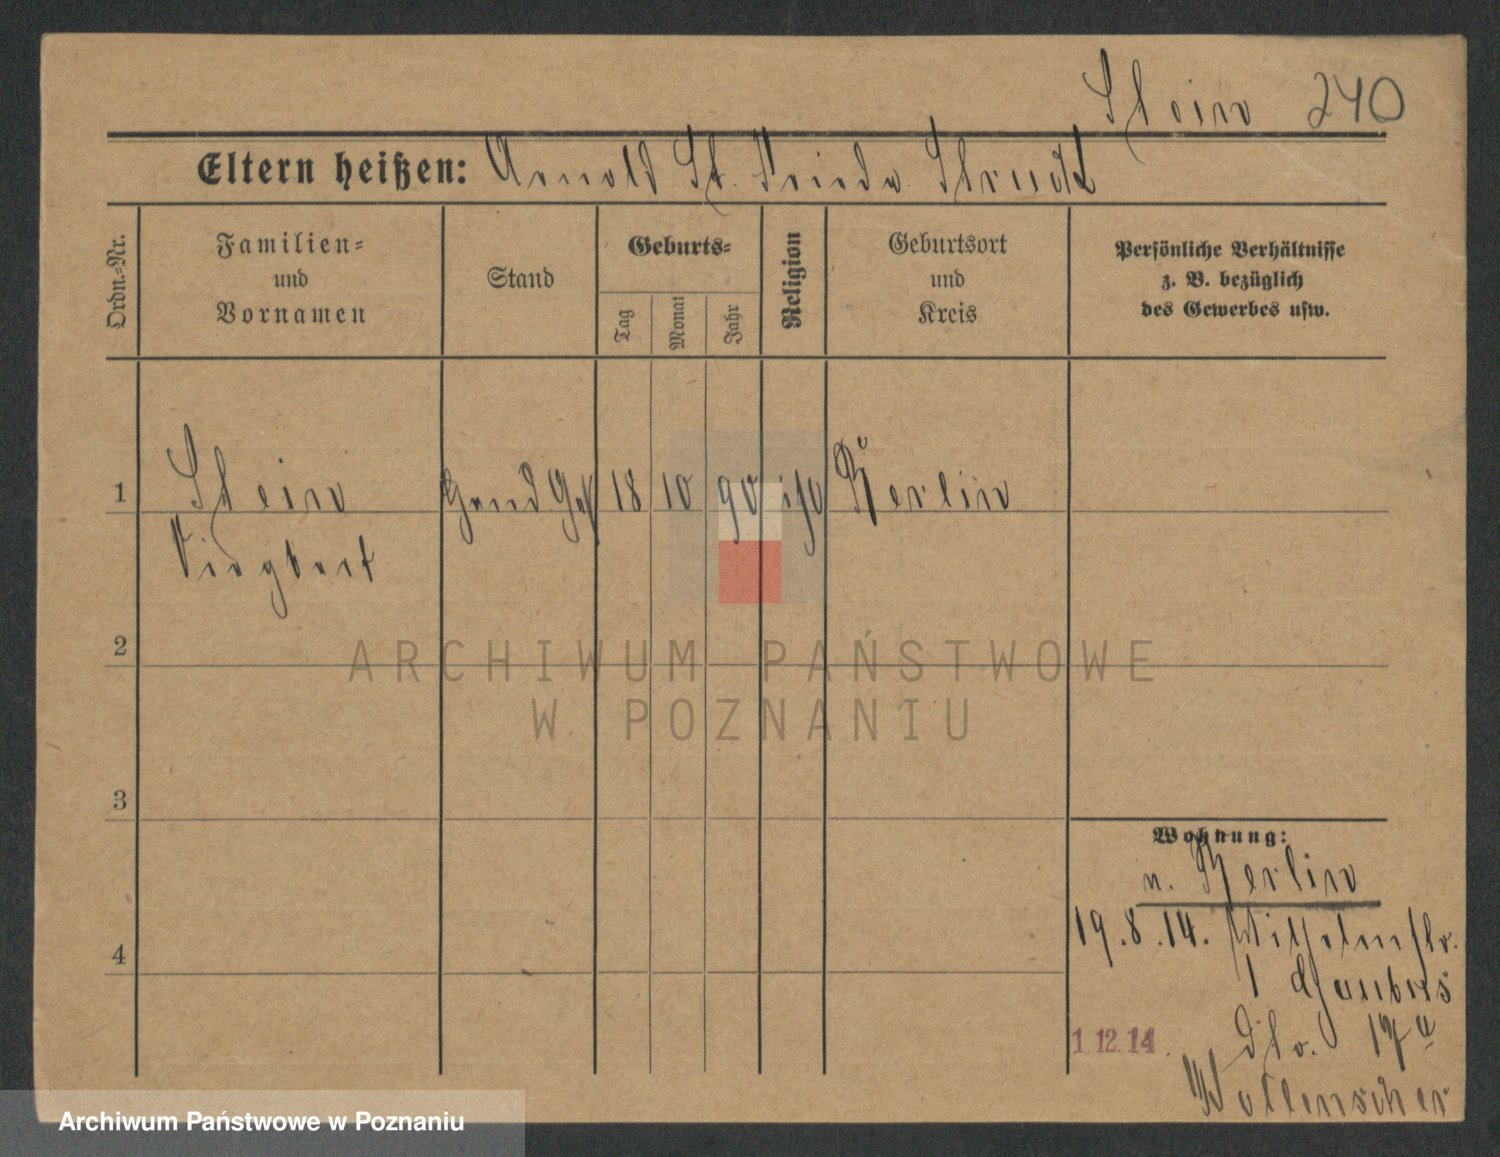 Stein 240
Eltern heißen: Arnold St. Frieda
Ordn.=Nr.
Familien=
und
Vornamen
Stand
Geburts=
Tag
Monat
Jahr
Religion
Geburtsort
und
Kreis
Persönliche Verhältnisse
z. B. bezüglich
des Gewerbes usw.
1 Stein 18 10 90 Berlin
2
3
4
Wohnung:
n. Berlin
19.8.14. Wilhelmstr.
1
1.12.14. 17 a
ARCHIWUM PAŃSTWOWE
W POZNANIU
Archiwum Państwowe w Poznaniu